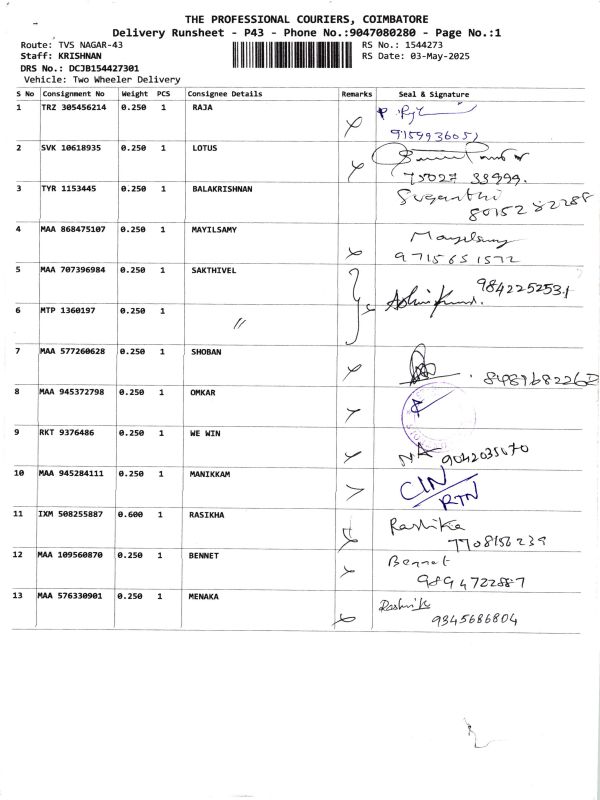 THE PROFESSIONAL COURIERS, COIMBATORE
Delivery Runsheet - P43 - Phone No.:9047080280 - Page No.:1
Route: TVS NAGAR-43 RS No.: 1544273
Staff: KRISHNAN RS Date: 03-May-2025
DRS No.: DCJB154427301
Vehicle: Two Wheeler Delivery
S No Consignment No Weight PCS Consignee Details Remarks Seal & Signature
1 TRZ 305456214 0.250 1 RAJA
2 SVK 10618935 0.250 1 LOTUS
75027 33999.
3 TYR 1153445 0.250 1 BALAKRISHNAN Suganthi
4 MAA 868475107 0.250 1 MAYILSAMY Mayilsamy
9715651572
5 MAA 707396984 0.250 1 SAKTHIVEL 9842252531
6 MTP 1360197 0.250 1 //
7 MAA 577260628 0.250 1 SHOBAN
8 MAA 945372798 0.250 1 OMKAR
9 RKT 9376486 0.250 1 WE WIN NA
10 MAA 945284111 0.250 1 MANIKKAM CIN/
RTN
11 IXM 508255887 0.600 1 RASIKHA Rashika
7708156239
12 MAA 109560870 0.250 1 BENNET Bennet
9894722887
13 MAA 576330901 0.250 1 MENAKA
9345686804